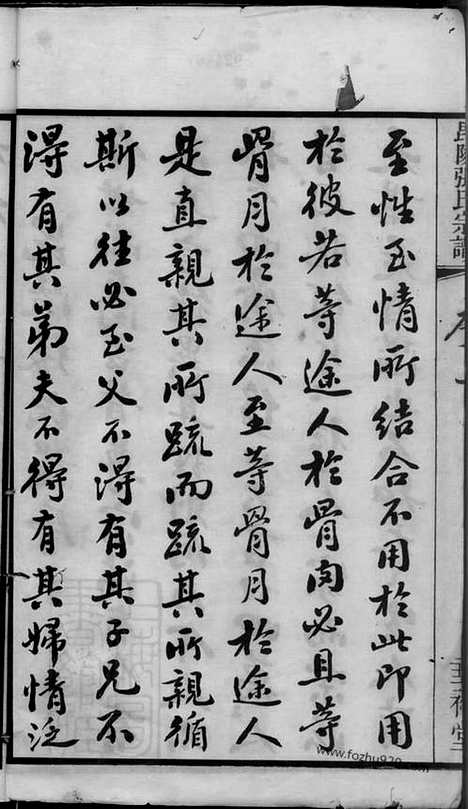 張氏宗譜
至性至情所結合不用於此即用
於彼若等途人於骨肉必且等
骨月於途人至等骨月於途人
是直親其所疏而疏其所親循
斯以往必至父不得有其子兄不
得有其弟夫不得有其婦情泛
www.fozhu920.com